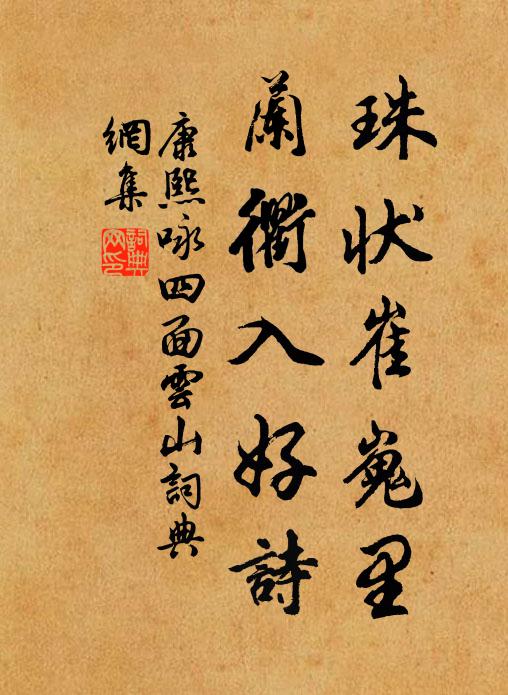 珠狀崔嵬里
蘭衢入好詩
康熙咏四面雲山詞典
網集
詞典網印